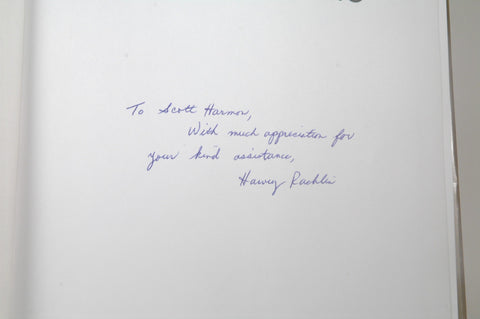 To Scott Harmon,
With much appreciation for
your kind assistance,
Harvey Rachlin